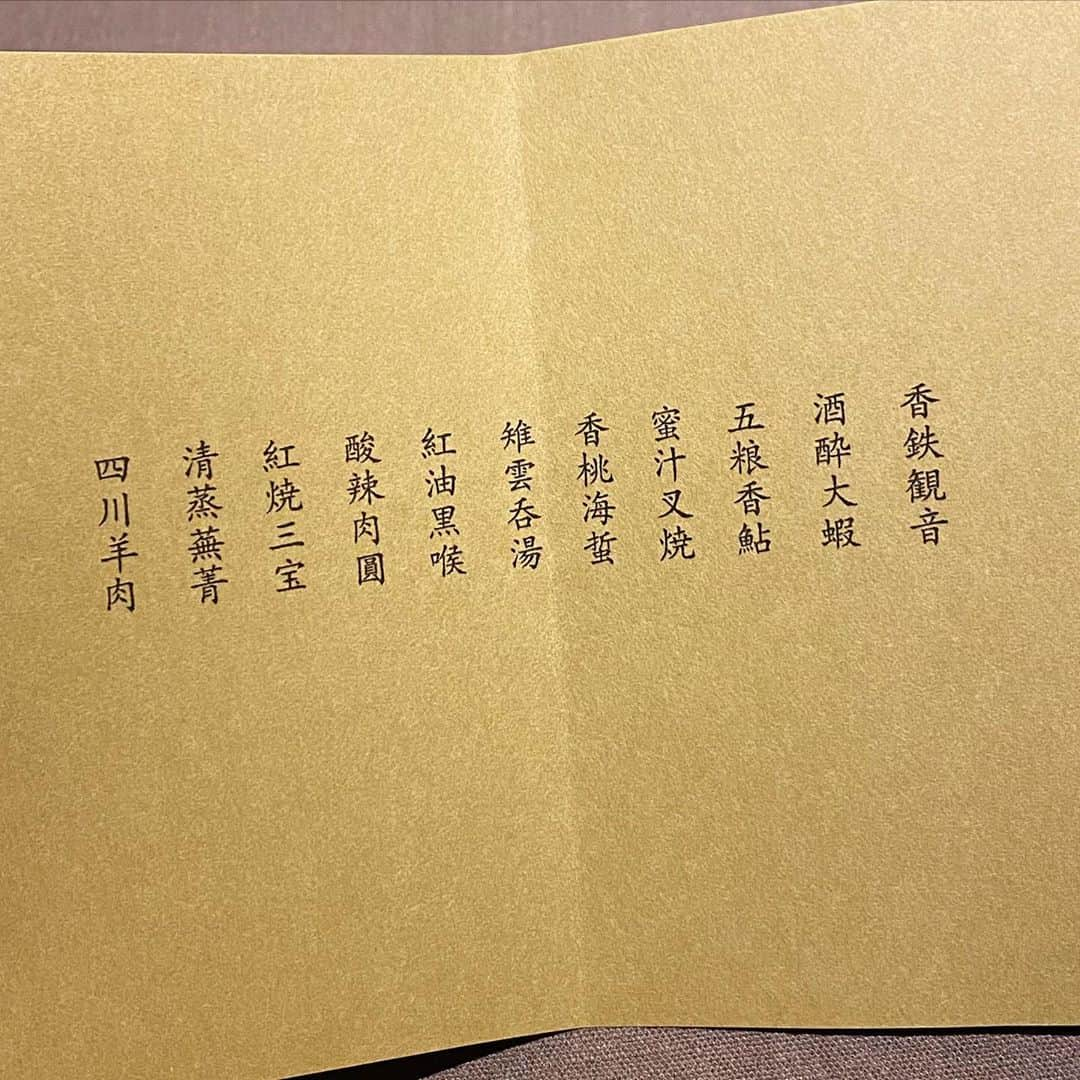 香鉄観音
酒酔大蝦
五粮香鮎
蜜汁叉焼
香桃海蜇
雉雲呑湯
紅油黒喉
酸辣肉圓
紅焼三宝
清蒸蕪菁
四川羊肉